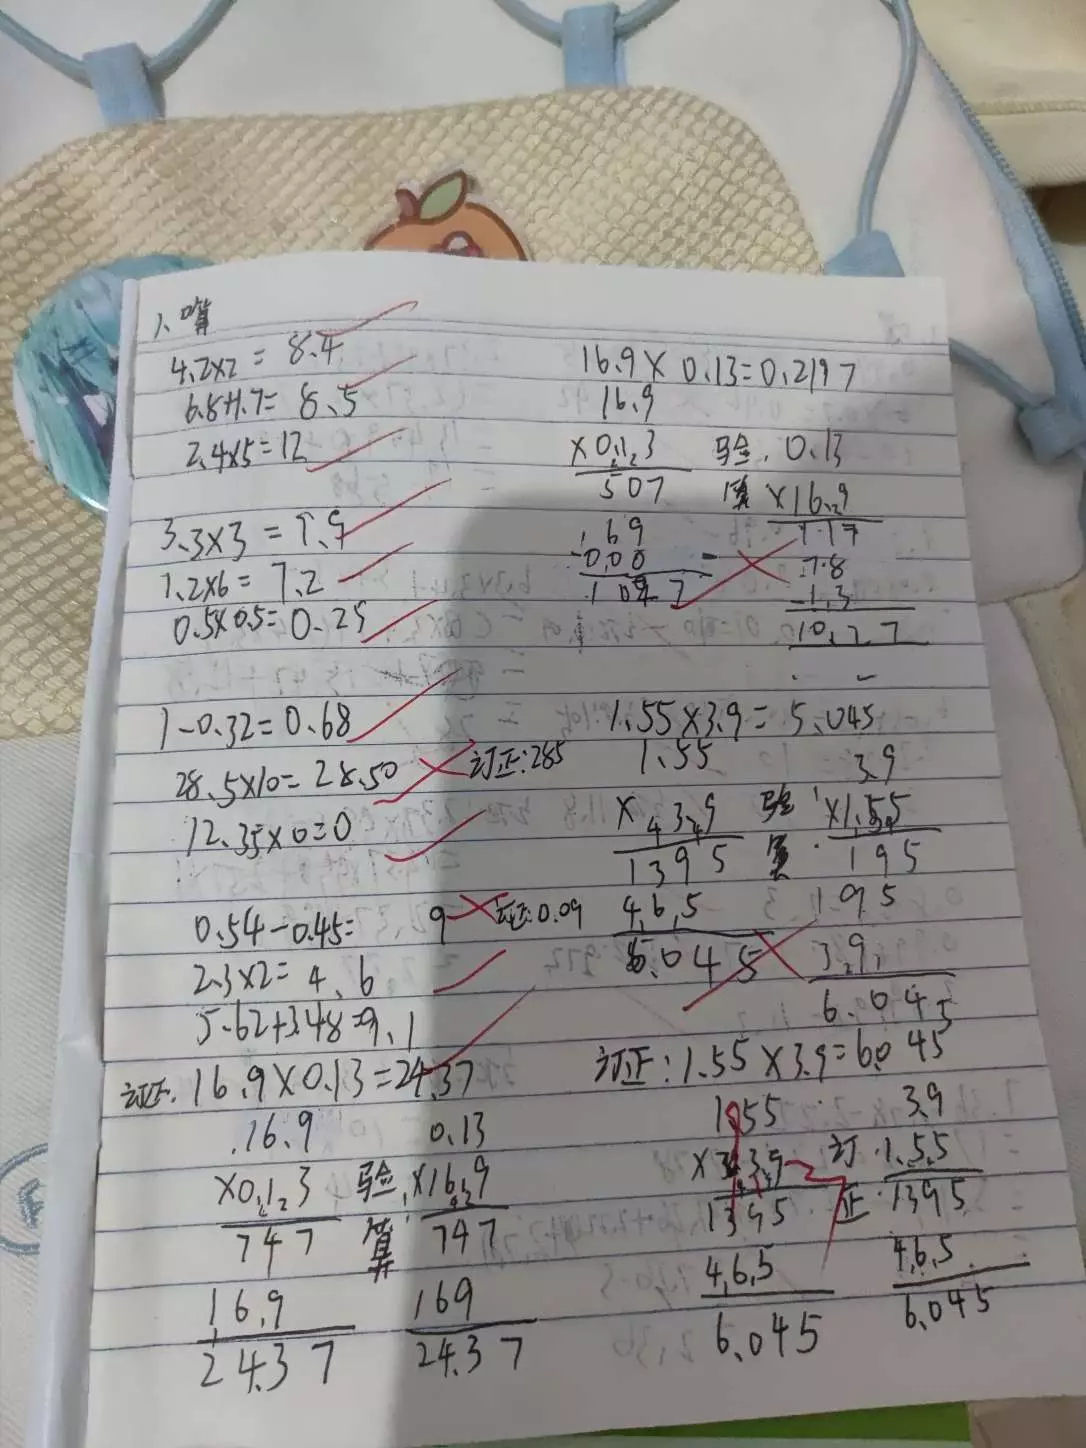 1、口算
4.2×2=8.4
6.8+1.7=8.5
2.4×5=12
3.3×3=9.9
1.2×6=7.2
0.5×0.5=0.25
1-0.32=0.68
28.5×10=28.50 订正:285
12.35×0=0
0.54-0.45=9 订正:0.09
2.3×2=4.6
5.62+3.48=9.1
订正:16.9×0.13=24.37
16.9
×0.13
747
16.9
24.37
验算:
0.13
×16.9
747
169
24.37
16.9×0.13=0.2197
16.9
×0.13
507
169
000
验算:
0.13
×16.9
1.17
78
1.3
10.77
1.55×3.9=5.045
1.55
×3.9
1395
4.6.5
6.045
验算:
3.9
×1.55
195
195
3.9
6.045
订正:1.55×3.9=6.045
1.55
×3.9
1395
4.6.5
6.045
订正:
3.9
1.5.5
1395
4.6.5
6.045